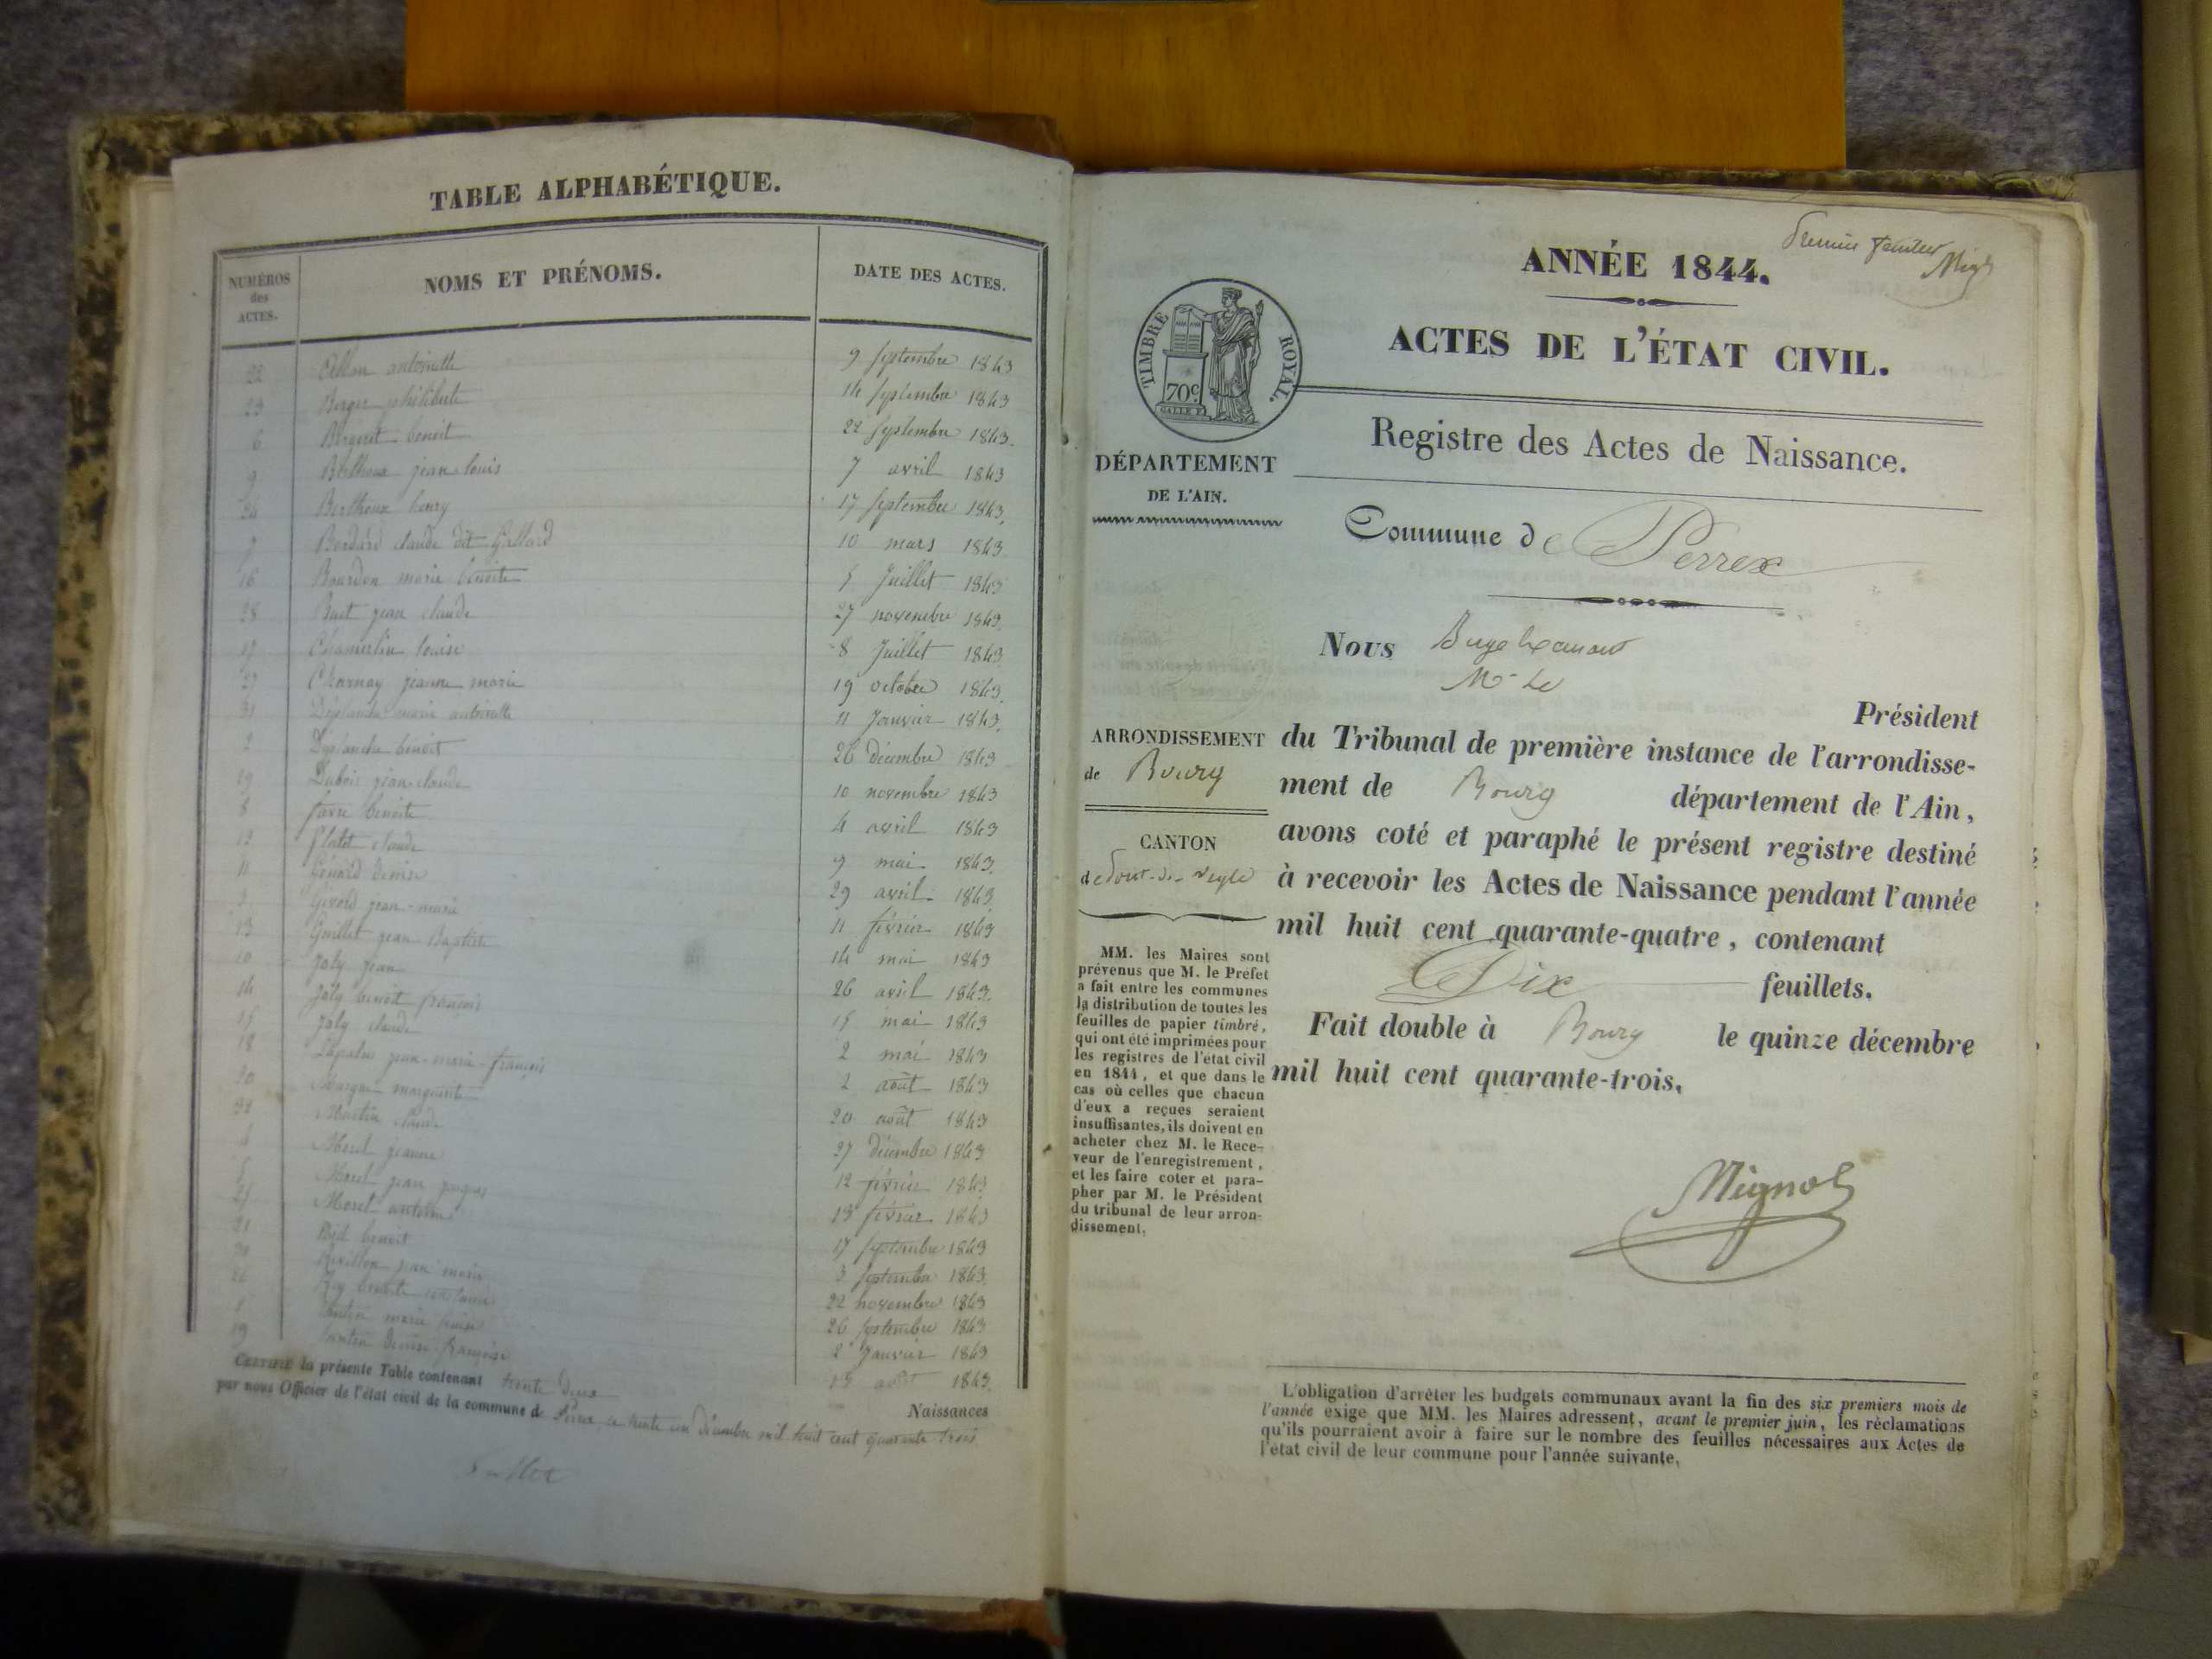 TABLE ALPHABÉTIQUE.
NUMÉROS
des
ACTES.
NOMS ET PRÉNOMS.
DATE DES ACTES.
22 antoinette 9 Septembre 1843
23 Berger philiberte 14 Septembre 1843
6 Bergeret benoit 22 Septembre 1843.
9 Bertheux jean louis 7 avril 1843
24 Bertheux henry 17 Septembre 1843.
7 claude dit Gallard 10 mars 1843
16 Bourdon marie benoite 5 Juillet 1843
28 Buet jean claude 27 novembre 1843.
17 Chamerlin louise 8 Juillet 1843.
27 Charnay jeanne marie 19 octobre 1843.
31 Desplanche marie antoinette 11 Janvier 1843.
2 Desplanche benoit 26 décembre 1843
19 Dubois jean claude 10 novembre 1843
8 favre benoite 4 avril 1843
12 claude 9 mai 1843.
11 Génard Denise 29 avril 1843.
3 Givord jean-marie 11 février 1843
13 Guillet jean Baptiste 14 mai 1843
10 Joly jean 26 avril 1843.
14 Joly benoit françois 15 mai 1843
15 Joly claude 2 mai 1843
18 jean-marie-françois 2 août 1843
20 marguerite 20 août 1843
32 Martin claude 27 décembre 1843
4 Morel jeanne 12 février 1843
5 Morel jean 13 février 1843
25 Morel antoine 17 Septembre 1843
21 benoit 3 Septembre 1843.
30 Revillon jean marie 22 novembre 1843
26 Rey benoite 26 Septembre 1843
1 marie louise 2 Janvier 1843
19 Denise françoise 13 août 1843.
CERTIFIÉ la présente Table contenant trente deux Naissances
par nous Officier de l'état civil de la commune de Perrex, ce trente un Décembre mil huit cent quarante trois
Premier feuillet
Mig
ANNÉE 1844.
ACTES DE L'ÉTAT CIVIL.
TIMBRE ROYAL.
70c
GALLE F.
Registre des Actes de Naissance.
DÉPARTEMENT
DE L'AIN.
Commune de Perrex
Nous
Président
ARRONDISSEMENT
de Bourg
du Tribunal de première instance de l'arrondisse-
ment de Bourg département de l'Ain,
avons coté et paraphé le présent registre destiné
à recevoir les Actes de Naissance pendant l'année
mil huit cent quarante-quatre, contenant
Dix feuillets.
Fait double à Bourg le quinze décembre
mil huit cent quarante-trois.
Mignot
CANTON
de Pont-de-Veyle
MM. les Maires sont
prévenus que M. le Préfet
a fait entre les communes
la distribution de toutes les
feuilles de papier timbré,
qui ont été imprimées pour
les registres de l'état civil
en 1844, et que dans le
cas où celles que chacun
d'eux a reçues seraient
insuffisantes, ils doivent en
acheter chez M. le Rece-
veur de l'enregistrement,
et les faire coter et para-
pher par M. le Président
du tribunal de leur arron-
dissement.
L'obligation d'arrêter les budgets communaux avant la fin des six premiers mois de
l'année exige que MM. les Maires adressent, avant le premier juin, les réclamations
qu'ils pourraient avoir à faire sur le nombre des feuilles nécessaires aux Actes de
l'état civil de leur commune pour l'année suivante.